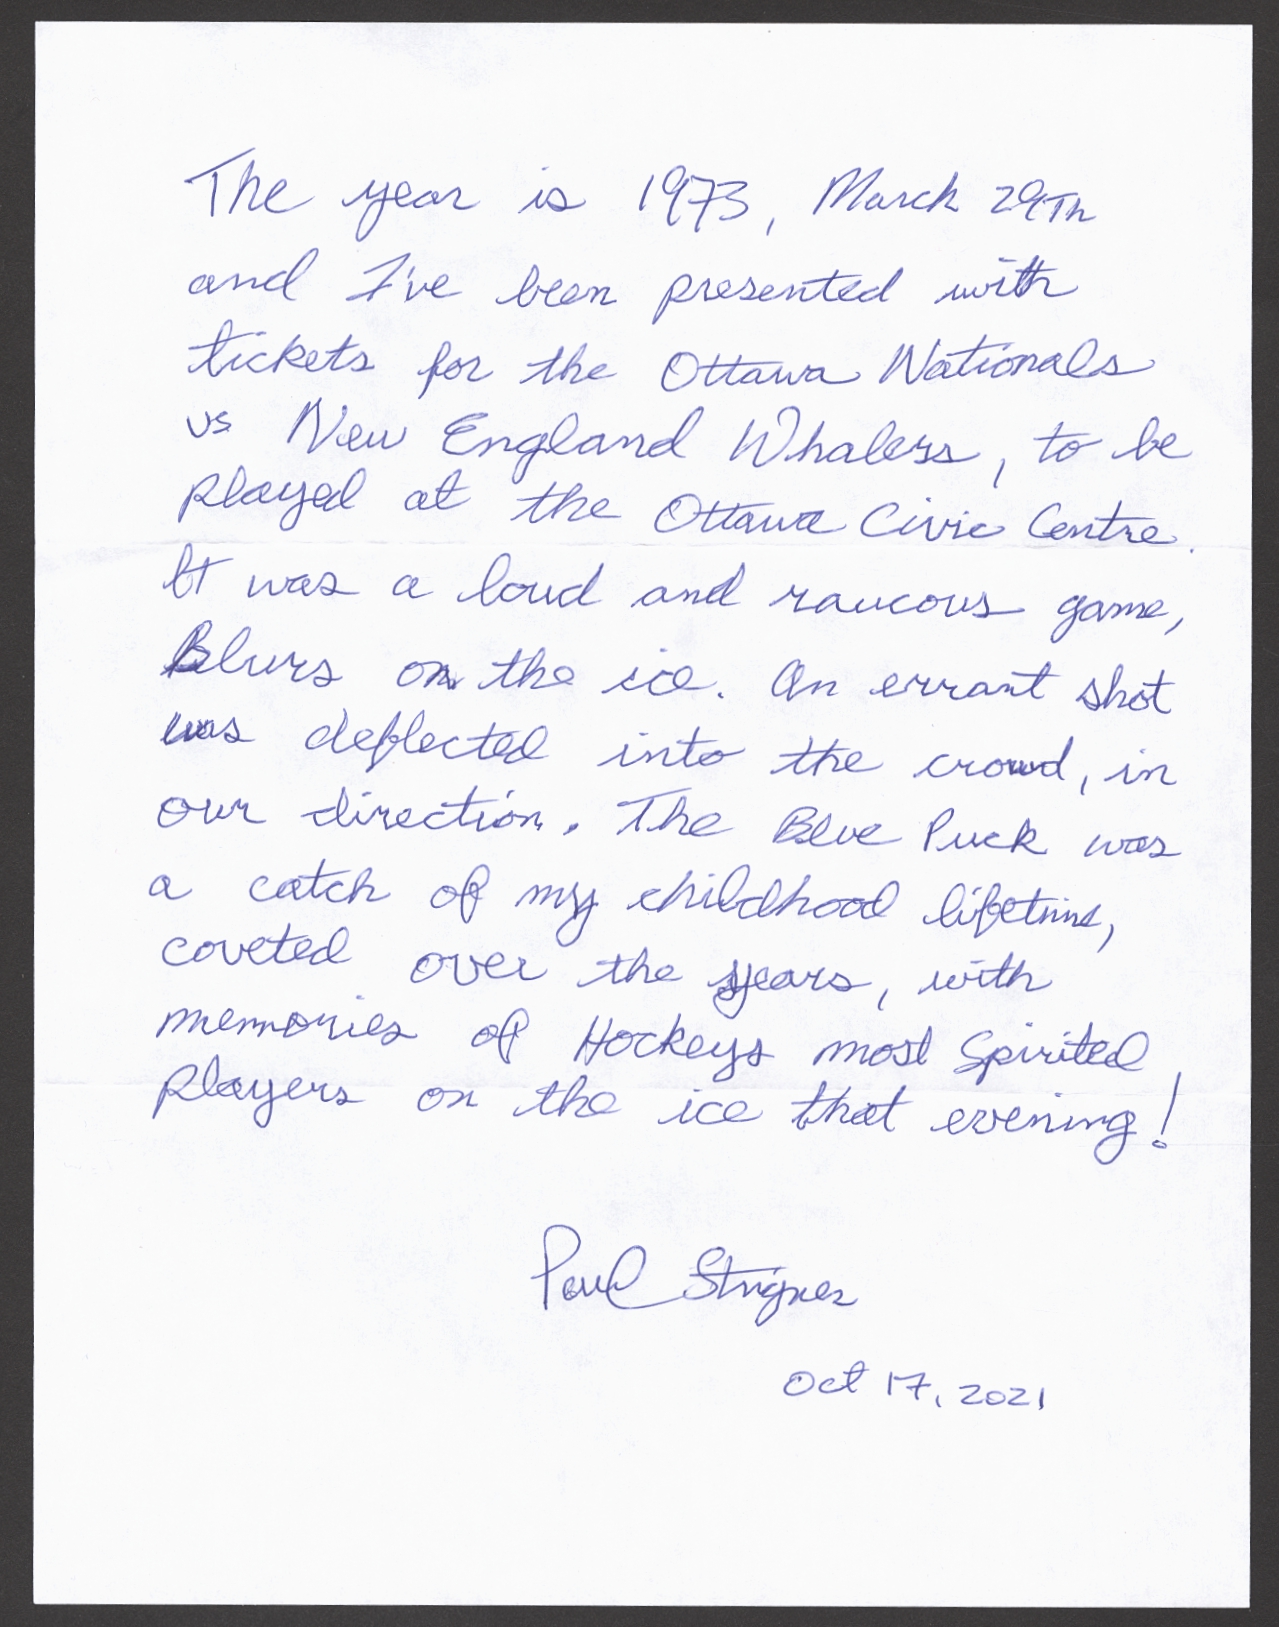 The year is 1973, March 29Th
and I've been presented with
tickets for the Ottawa Nationals
vs New England Whalers, to be
played at the Ottawa Civic Centre.
It was a loud and raucous game,
Blurs on the ice. An errant shot
was deflected into the crowd, in
our direction. The Blue Puck was
a catch of my childhood lifetime,
coveted over the years, with
memories of Hockeys most Spirited
players on the ice that evening!
Paul
Oct 17, 2021